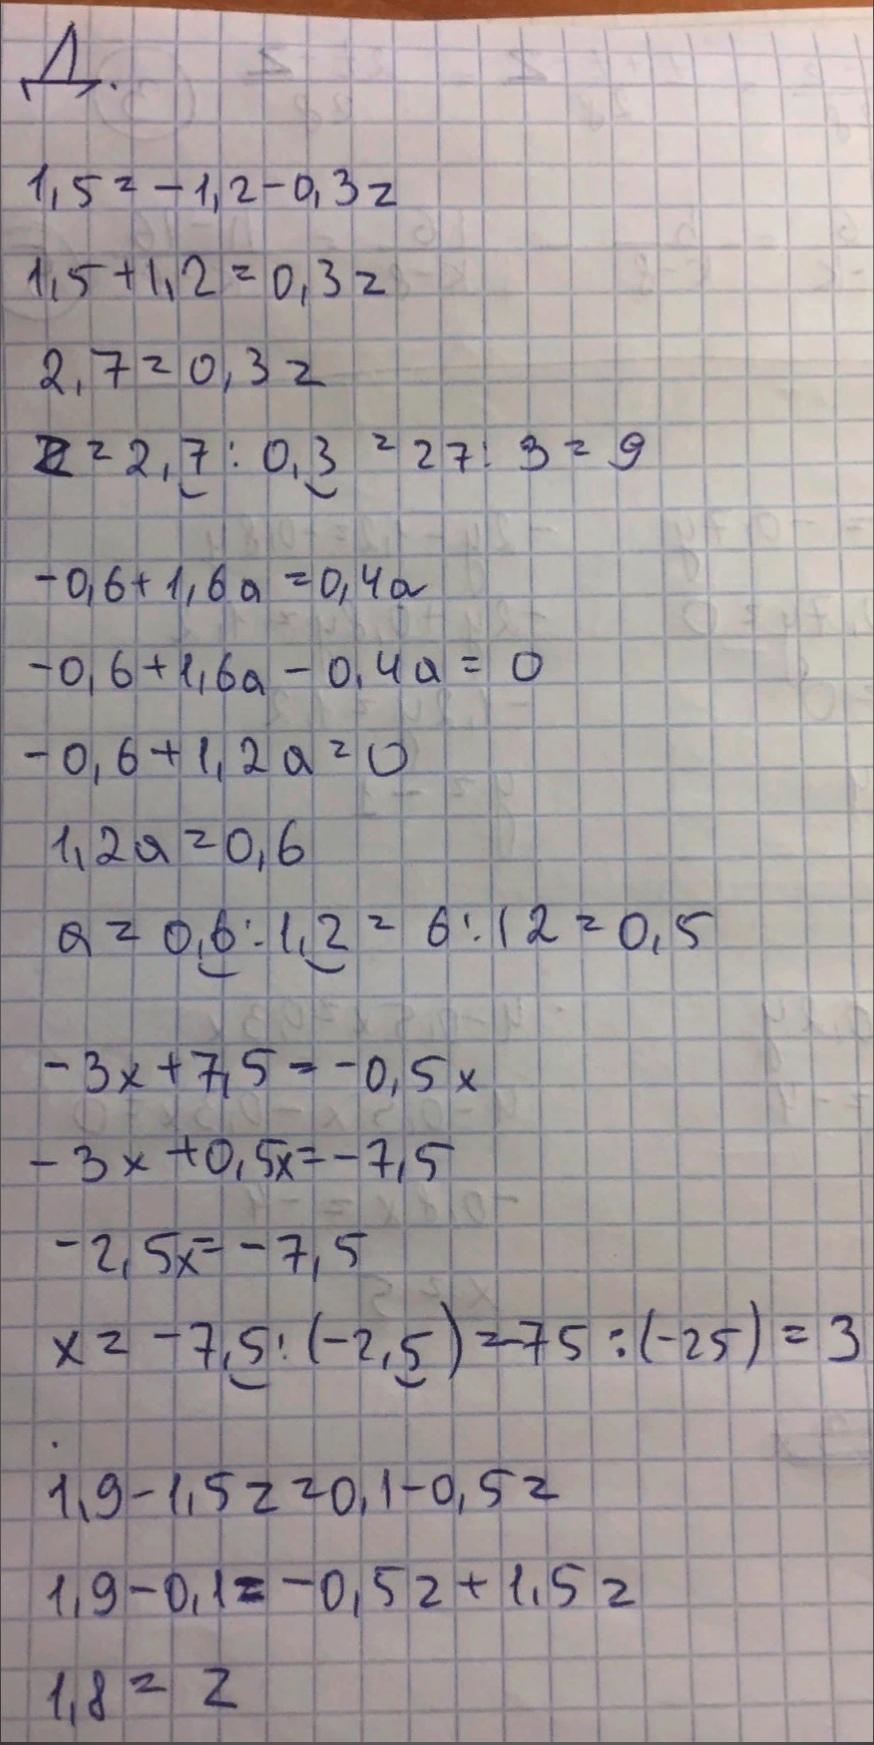 Д.
1,5 = -1,2 - 0,3z
1,5 + 1,2 = 0,3z
2,7 = 0,3z
z = 2,7 : 0,3 = 27 : 3 = 9
-0,6 + 1,6a = 0,4a
-0,6 + 1,6a - 0,4a = 0
-0,6 + 1,2a = 0
1,2a = 0,6
a = 0,6 : 1,2 = 6 : 12 = 0,5
-3x + 7,5 = -0,5x
-3x + 0,5x = -7,5
-2,5x = -7,5
x = -7,5 : (-2,5) = -75 : (-25) = 3
1,9 - 1,5z = 0,1 - 0,5z
1,9 - 0,1 = -0,5z + 1,5z
1,8 = z